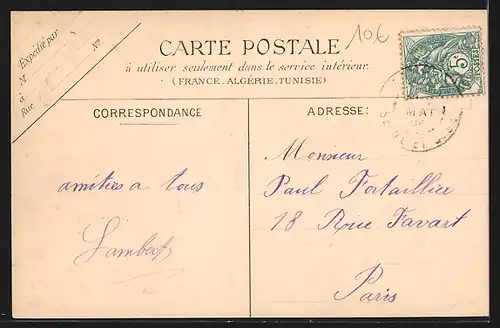 Expédié par
M
à
Rue
N°
10€
CARTE POSTALE
à utiliser seulement dans le service intérieur.
(FRANCE-ALGÉRIE-TUNISIE)
5
CORRESPONDANCE
ADRESSE:
amitiés a tous
Lambert
Monsieur
Paul Fortaillier
18 Rue Favart
Paris